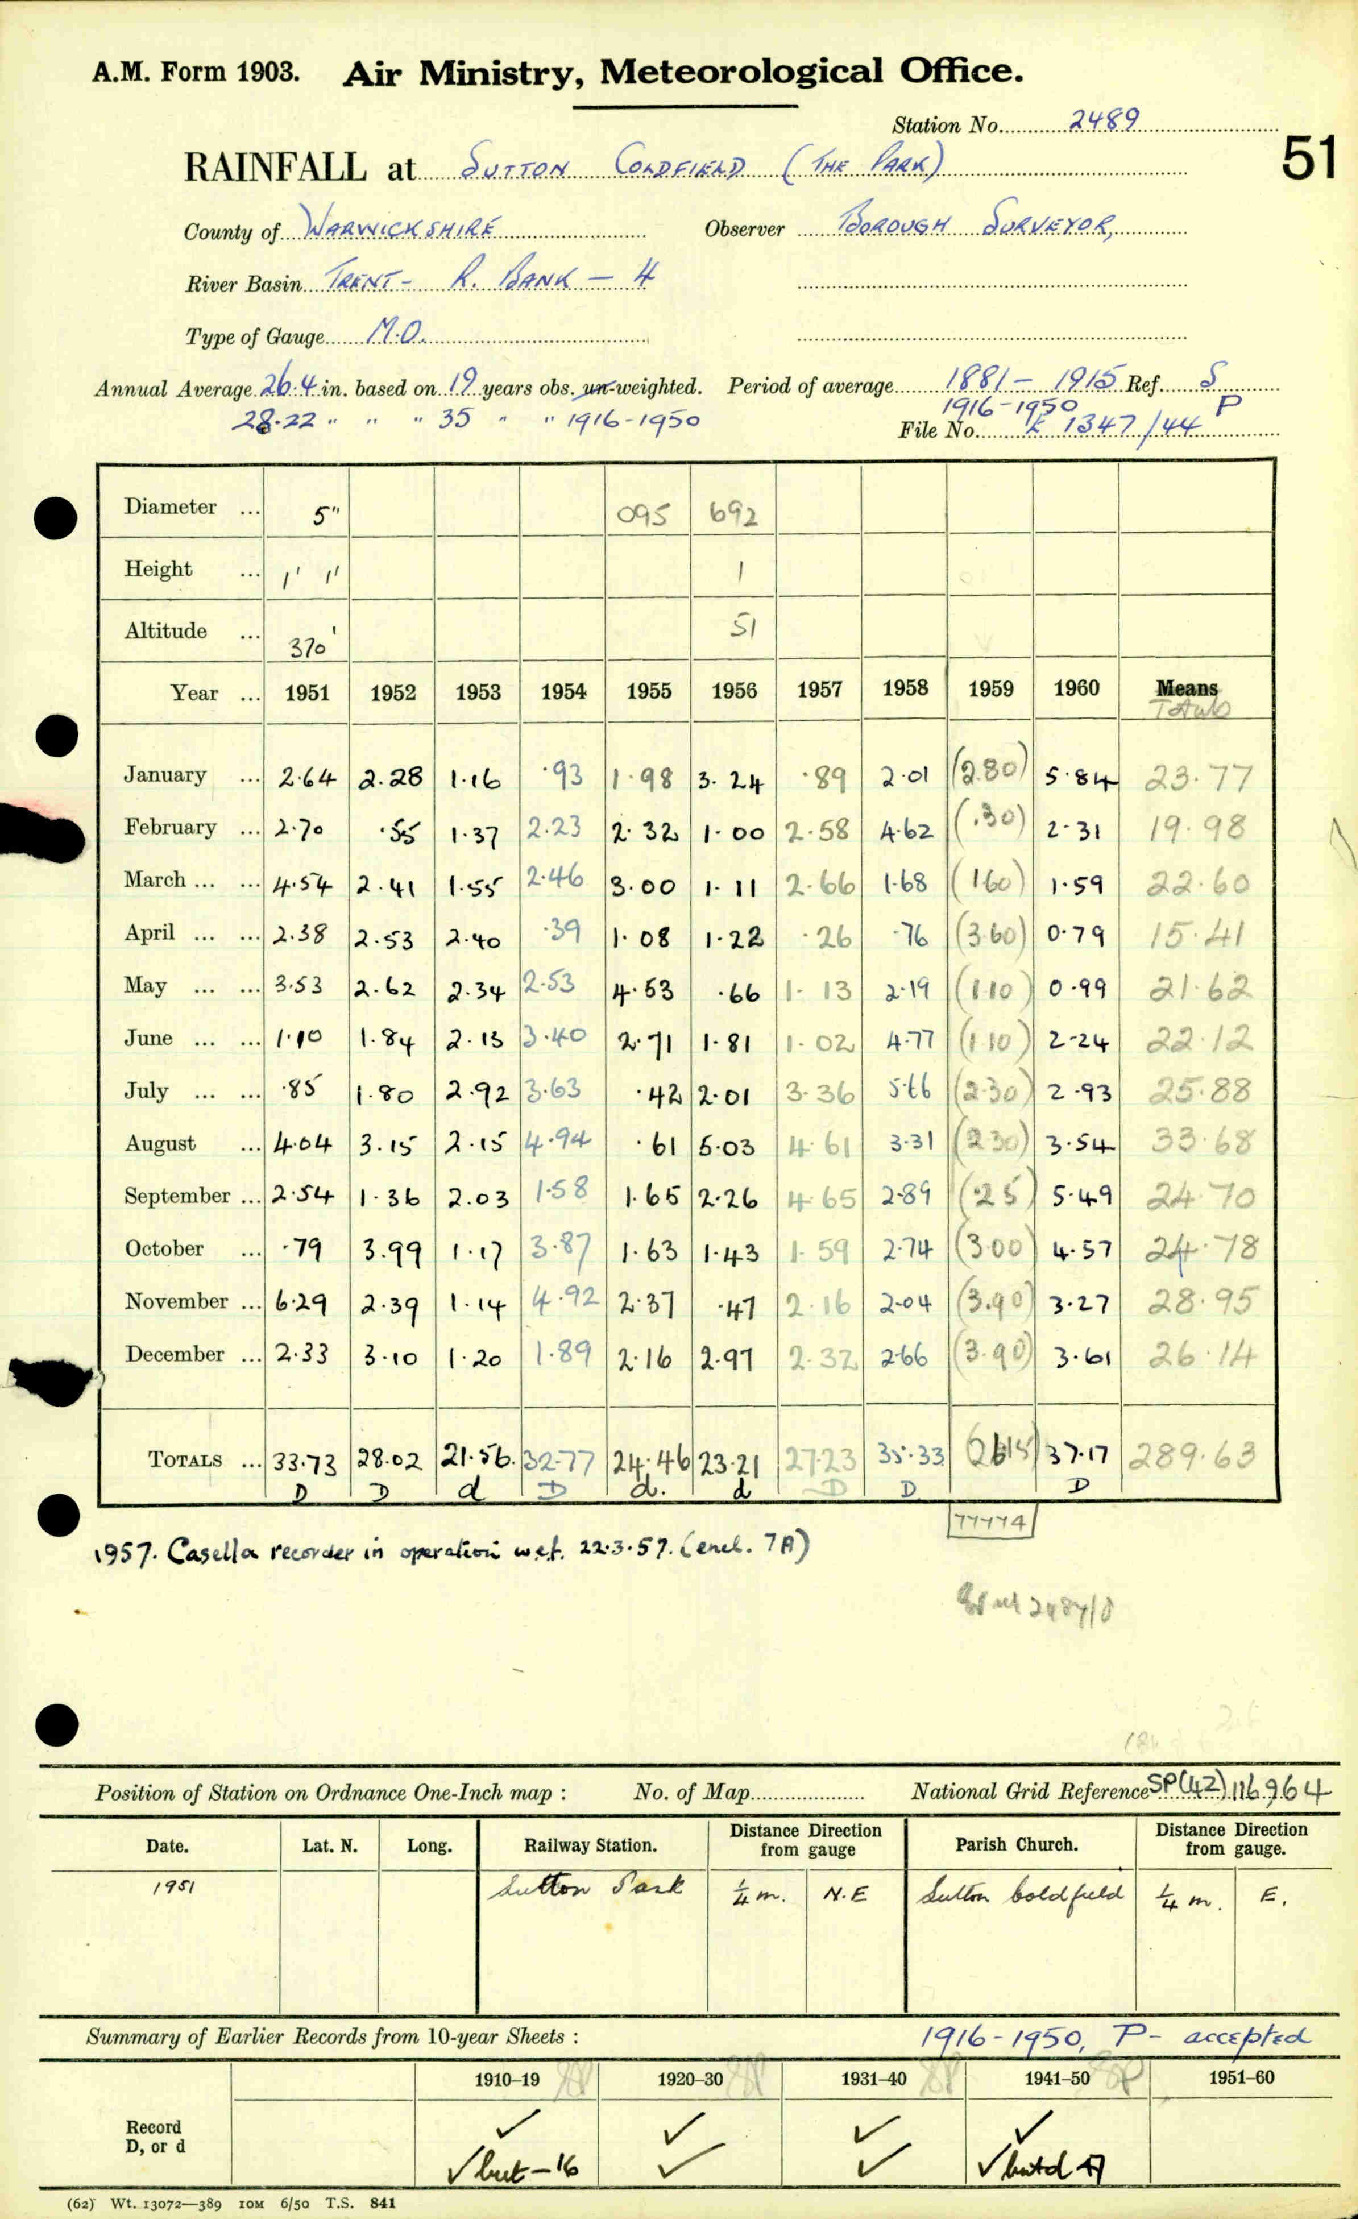 A.M. Form 1903. Air Ministry, Meteorological Office.
Station No. 2489
51
RAINFALL at SUTTON COLDFIELD (THE PARK)
County of WARWICKSHIRE Observer BOROUGH SURVEYOR,
River Basin TRENT - R. BANK - 4
Type of Gauge M.O.
Annual Average 26.4 in. based on 19 years obs. un-weighted. Period of average 1881 - 1915 Ref. S
28.22 " " " 35 " " 1916-1950 1916-1950 P
File No. E 1347/44
Diameter ... 5" 095 692
Height ... 1' 1" 1
Altitude ... 370' 51
Year ... 1951 1952 1953 1954 1955 1956 1957 1958 1959 1960 Means
Totals
January ... 2.64 2.28 1.16 .93 1.98 3.24 .89 2.01 (2.80) 5.84 23.77
February ... 2.70 .55 1.37 2.23 2.32 1.00 2.58 4.62 (.30) 2.31 19.98
March ... ... 4.54 2.41 1.55 2.46 3.00 1.11 2.66 1.68 (1.60) 1.59 22.60
April ... ... 2.38 2.53 2.40 .39 1.08 1.22 .26 .76 (3.60) 0.79 15.41
May ... ... 3.53 2.62 2.34 2.53 4.53 .66 1.13 2.19 (1.10) 0.99 21.62
June ... ... 1.10 1.84 2.13 3.40 2.71 1.81 1.02 4.77 (1.10) 2.24 22.12
July ... ... .85 1.80 2.92 3.63 .42 2.01 3.36 5.66 (2.30) 2.93 25.88
August ... 4.04 3.15 2.15 4.94 .61 5.03 4.61 3.31 (2.30) 3.54 33.68
September ... 2.54 1.36 2.03 1.58 1.65 2.26 4.65 2.89 (.25) 5.49 24.70
October ... .79 3.99 1.17 3.87 1.63 1.43 1.59 2.74 (3.00) 4.57 24.78
November ... 6.29 2.39 1.14 4.92 2.37 .47 2.16 2.04 (3.90) 3.27 28.95
December ... 2.33 3.10 1.20 1.89 2.16 2.97 2.32 2.66 (3.90) 3.61 26.14
TOTALS ... 33.73 28.02 21.56 32.77 24.46 23.21 27.23 35.33 (26.15) 37.17 289.63
D D d D d. d D D D
77774
1957. Casella recorder in operation w.e.f. 22.3.57. (encl. 7A)
Position of Station on Ordnance One-Inch map : No. of Map National Grid Reference SP(42) 116964
Date. Lat. N. Long. Railway Station. Distance from gauge Direction Parish Church. Distance from gauge. Direction
1951 Sutton Park ¼ m. N.E Sutton Coldfield ¼ m. E.
Summary of Earlier Records from 10-year Sheets : 1916-1950, P- accepted
1910–19 1920–30 1931–40 1941–50 1951–60
Record ✓ ✓ ✓ ✓
D, or d ✓ but -16 ✓ ✓ ✓
(62) Wt. 13072—389 10M 6/50 T.S. 841